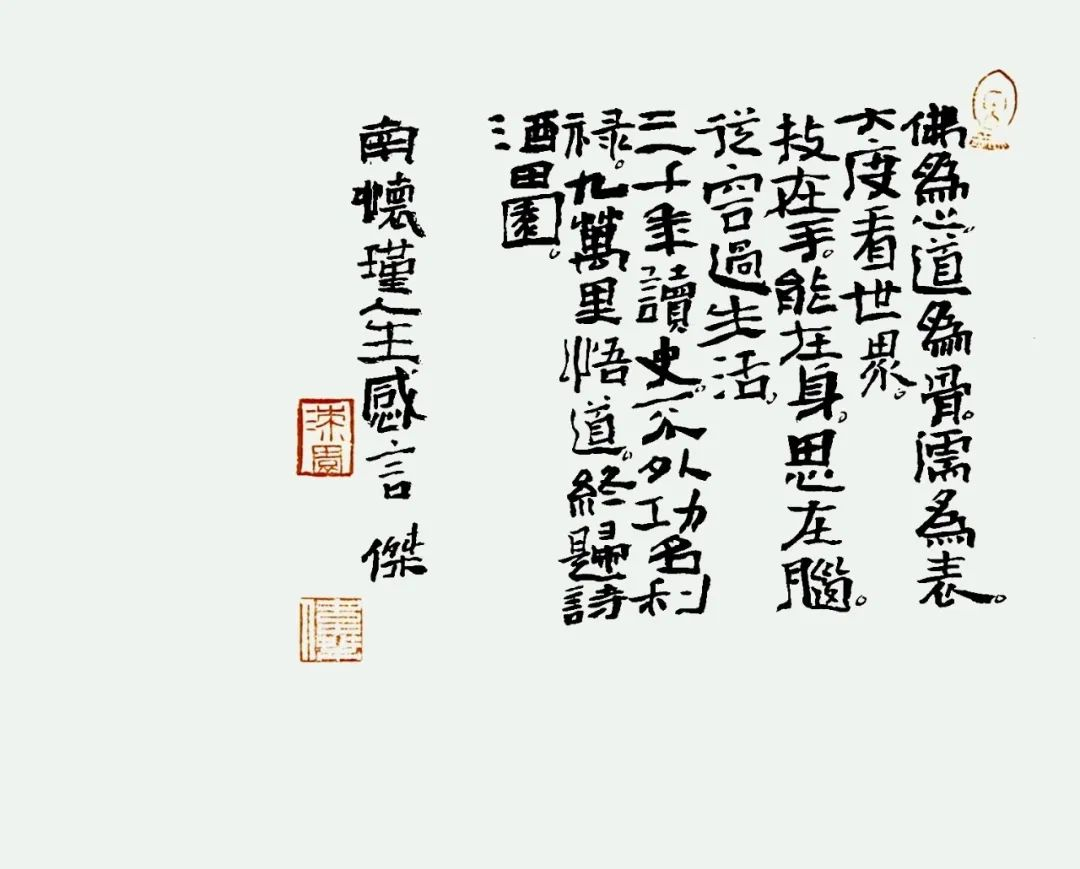 佛為心。道為骨。濡為表。
大度看世界。
技在手。能在身。思在腦。
從容過生活。
三千年讀史。不外功名利
禄。九萬里悟道。終歸詩
酒田園。
南懷瑾人生感言 傑